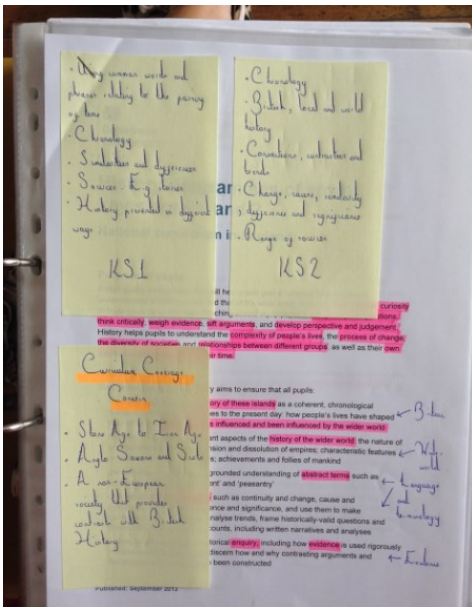 · Using common words and
phrases relating to the passing
of time
· Chronology
· Similarities and differences
· Sources - E.g. stories
· History presented in different
ways
KS1
· Chronology
· British, local and world
history
· Connections, contrasts and
trends
· Change, cause, similarity
, difference and significance
· Range of sources
KS2
curiosity
think critically, weigh evidence, sift arguments, and develop perspective and judgement.
History helps pupils to understand the complexity of people's lives, the process of change,
the diversity of societies and relationships between different groups, as well as their own
ir time.
Curriculum Coverage
· Stone Age to Iron Age
· Anglo Saxons and Scots
· A non-European
society that provides
contrasts with British
History
y aims to ensure that all pupils:
ory of these islands as a coherent, chronological
es to the present day: how people's lives have shaped
s influenced and been influenced by the wider world
nt aspects of the history of the wider world: the nature of
nsion and dissolution of empires; characteristic features
s; achievements and follies of mankind
grounded understanding of abstract terms such as
ent' and 'peasantry'
such as continuity and change, cause and
ence and significance, and use them to make
nalyse trends, frame historically-valid questions and
counts, including written narratives and analyses
torical enquiry, including how evidence is used rigorously
discern how and why contrasting arguments and
been constructed
Britain
world
Language
and
terminology
Evidence
Published: September 2013